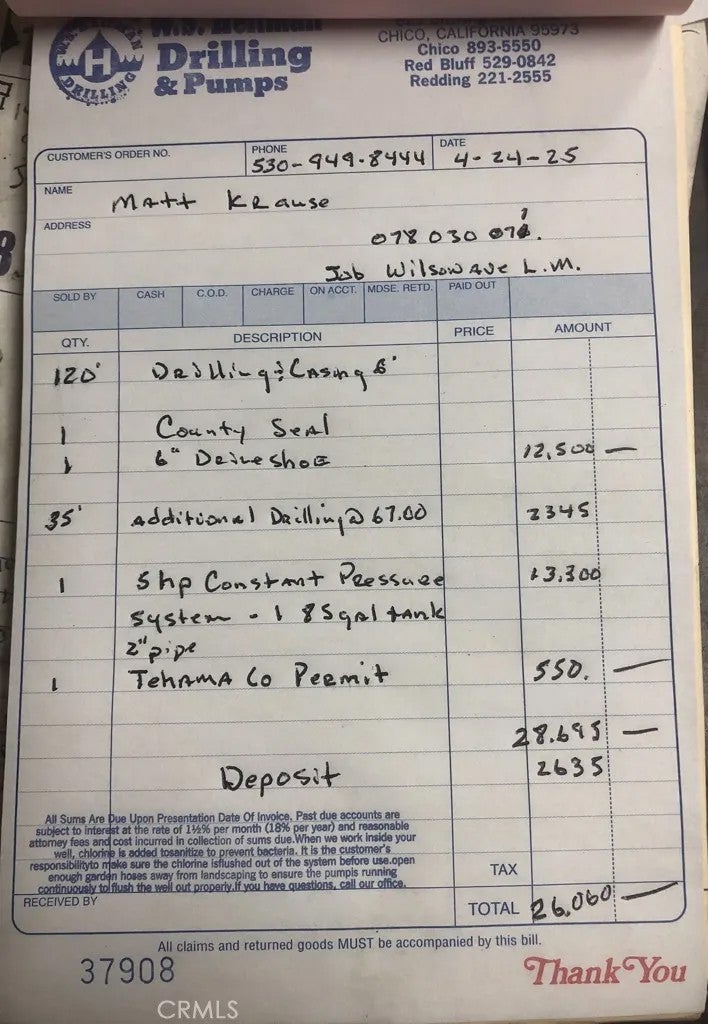 Drilling
& Pumps
DRILLING
H
CHICO, CALIFORNIA 95973
Chico 893-5550
Red Bluff 529-0842
Redding 221-2555
CUSTOMER'S ORDER NO. PHONE 530-949-8444 DATE 4-24-25
NAME Matt Krause
ADDRESS
078 030 071.
Job Wilson Ave L.M.
SOLD BY CASH C.O.D. CHARGE ON ACCT. MDSE. RETD. PAID OUT
QTY. DESCRIPTION PRICE AMOUNT
120' Drilling & Casing 6"
1 County Seal
1 6" Driveshoe 12,500 —
35' Additional Drilling @ 67.00 2345
1 5 hp Constant Pressure 13,300
System - 1 85 gal tank
2" pipe
1 Tehama Co Permit 550. —
28.695 —
Deposit 2635
All Sums Are Due Upon Presentation Date Of Invoice. Past due accounts are
subject to interest at the rate of 1½% per month (18% per year) and reasonable
attorney fees and cost incurred in collection of sums due.When we work inside your
well, chlorine is added tosanitize to prevent bacteria. It is the customer's
responsibilityto make sure the chlorine isflushed out of the system before use.open
enough garden hoses away from landscaping to ensure the pumpis running
continuously to flush the well out properly.If you have questions, call our office.
TAX
RECEIVED BY TOTAL 26,060 —
All claims and returned goods MUST be accompanied by this bill.
37908 Thank You
CRMLS